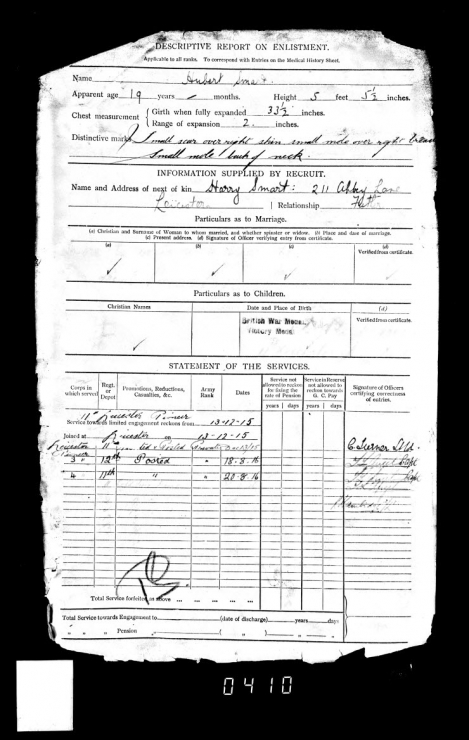 DESCRIPTIVE REPORT ON ENLISTMENT.
Applicable to all ranks. To correspond with Entries on the Medical History Sheet.
Name Hubert Smart.
Apparent age 19 years months. Height 5 feet 5½ inches.
Chest measurement { Girth when fully expanded 33½ inches.
Range of expansion 2. inches.
Distinctive marks Small scar over right shin small mole over right breast
Small mole back of neck.
INFORMATION SUPPLIED BY RECRUIT.
Name and Address of next of kin Harry Smart: 211 Abby Lane
Leicester | Relationship Father
Particulars as to Marriage.
(a) Christian and Surname of Woman to whom married, and whether spinster or widow. (b) Place and date of marriage.
(c) Present address. (d) Signature of Officer verifying entry from certificate.
(a) (b) (c) (d)
Verified from certificate.
Particulars as to Children.
Christian Names Date and Place of Birth (d)
British War Medal Verified from certificate.
Victory Medal
STATEMENT OF THE SERVICES.
Corps in which served Regt. or Depot Promotions, Reductions, Casualties, &c. Army Rank Dates Service not allowed to reckon for fixing the rate of Pension years | days Service in Reserve not allowed to reckon towards G. C. Pay years | days Signature of Officers certifying corrections of entries.
11th Leicester Pioneer
Service towards limited engagement reckons from 13-12-15
Joined at Leicester on 13-12-15
Leicester 11th Posted
3 " 12th Posted " 18-8-16 Capt
4 " 11th " " 20-8-16 Capt
Total Service forfeited as above ... ... ... ... ...
Total Service towards Engagement to (date of discharge) years days
" " " Pension ( " ) " "
0410